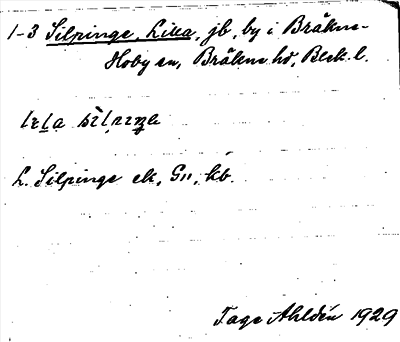 1-3 Silpinge, Lilla, jb, by i Bräkne-
Hoby sn, Bräkne hd, Blek. l.
L. Silpinge ek, G11, kb.
Tage Ahldén 1929